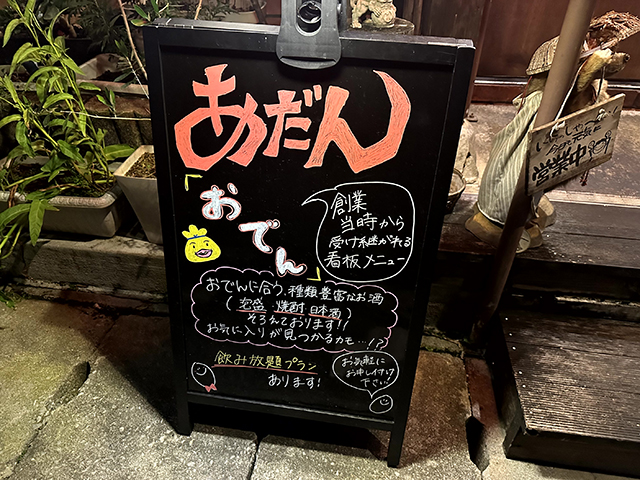 あだん
「おでん」
創業
当時から
受け継がれる
看板メニュー
おでんに合う、種類豊富なお酒
(泡盛 焼酎 日本酒)
そろえております!!
お気に入りが見つかるかも…!?
飲み放題プラン
あります!
お気軽に
お申し付け
下さい!
営業中